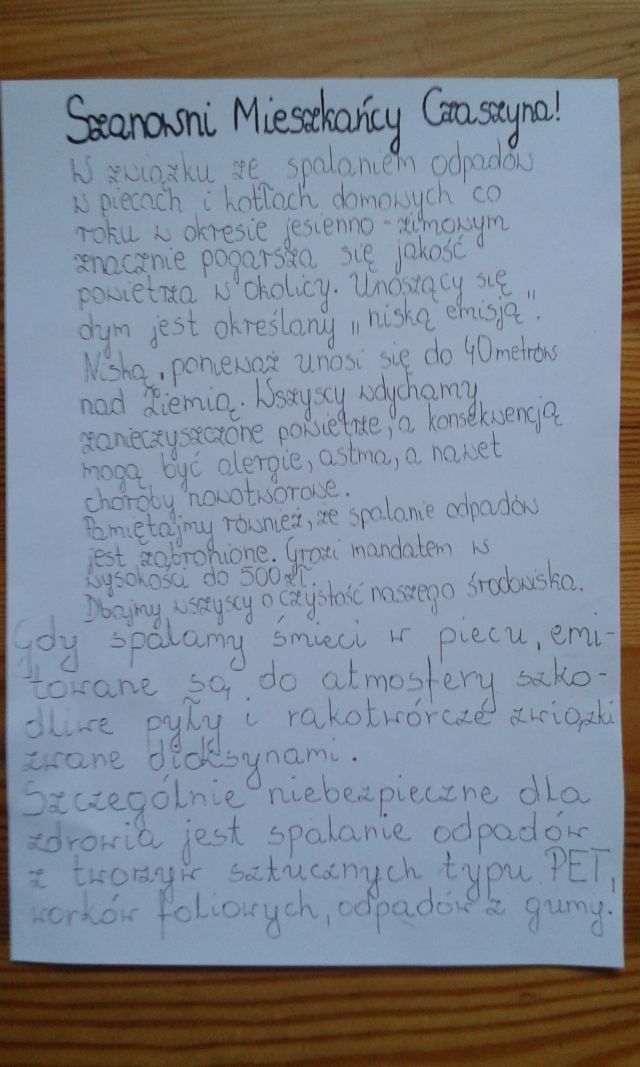 Szanowni Mieszkańcy Czaszyna!
W związku ze spalaniem odpadów
w piecach i kotłach domowych co
roku w okresie jesienno-zimowym
znacznie pogarsza się jakość
powietrza w okolicy. Unoszący się
dym jest określany „niską emisją".
Niską, ponieważ unosi się do 40 metrów
nad Ziemią. Wszyscy wdychamy
zanieczyszczone powietrze, a konsekwencją
mogą być alergie, astma, a nawet
choroby nowotworowe.
Pamiętajmy również, że spalanie odpadów
jest zabronione. Grozi mandatem w
wysokości do 500 zł.
Dbajmy wszyscy o czystość naszego środowiska.
Gdy spalamy śmieci w piecu, emi-
towane są do atmosfery szko-
dliwe pyły i rakotwórcze związki
zwane dioksynami.
Szczególnie niebezpieczne dla
zdrowia jest spalanie odpadów
z tworzyw sztucznych typu PET,
worków foliowych, odpadów z gumy.